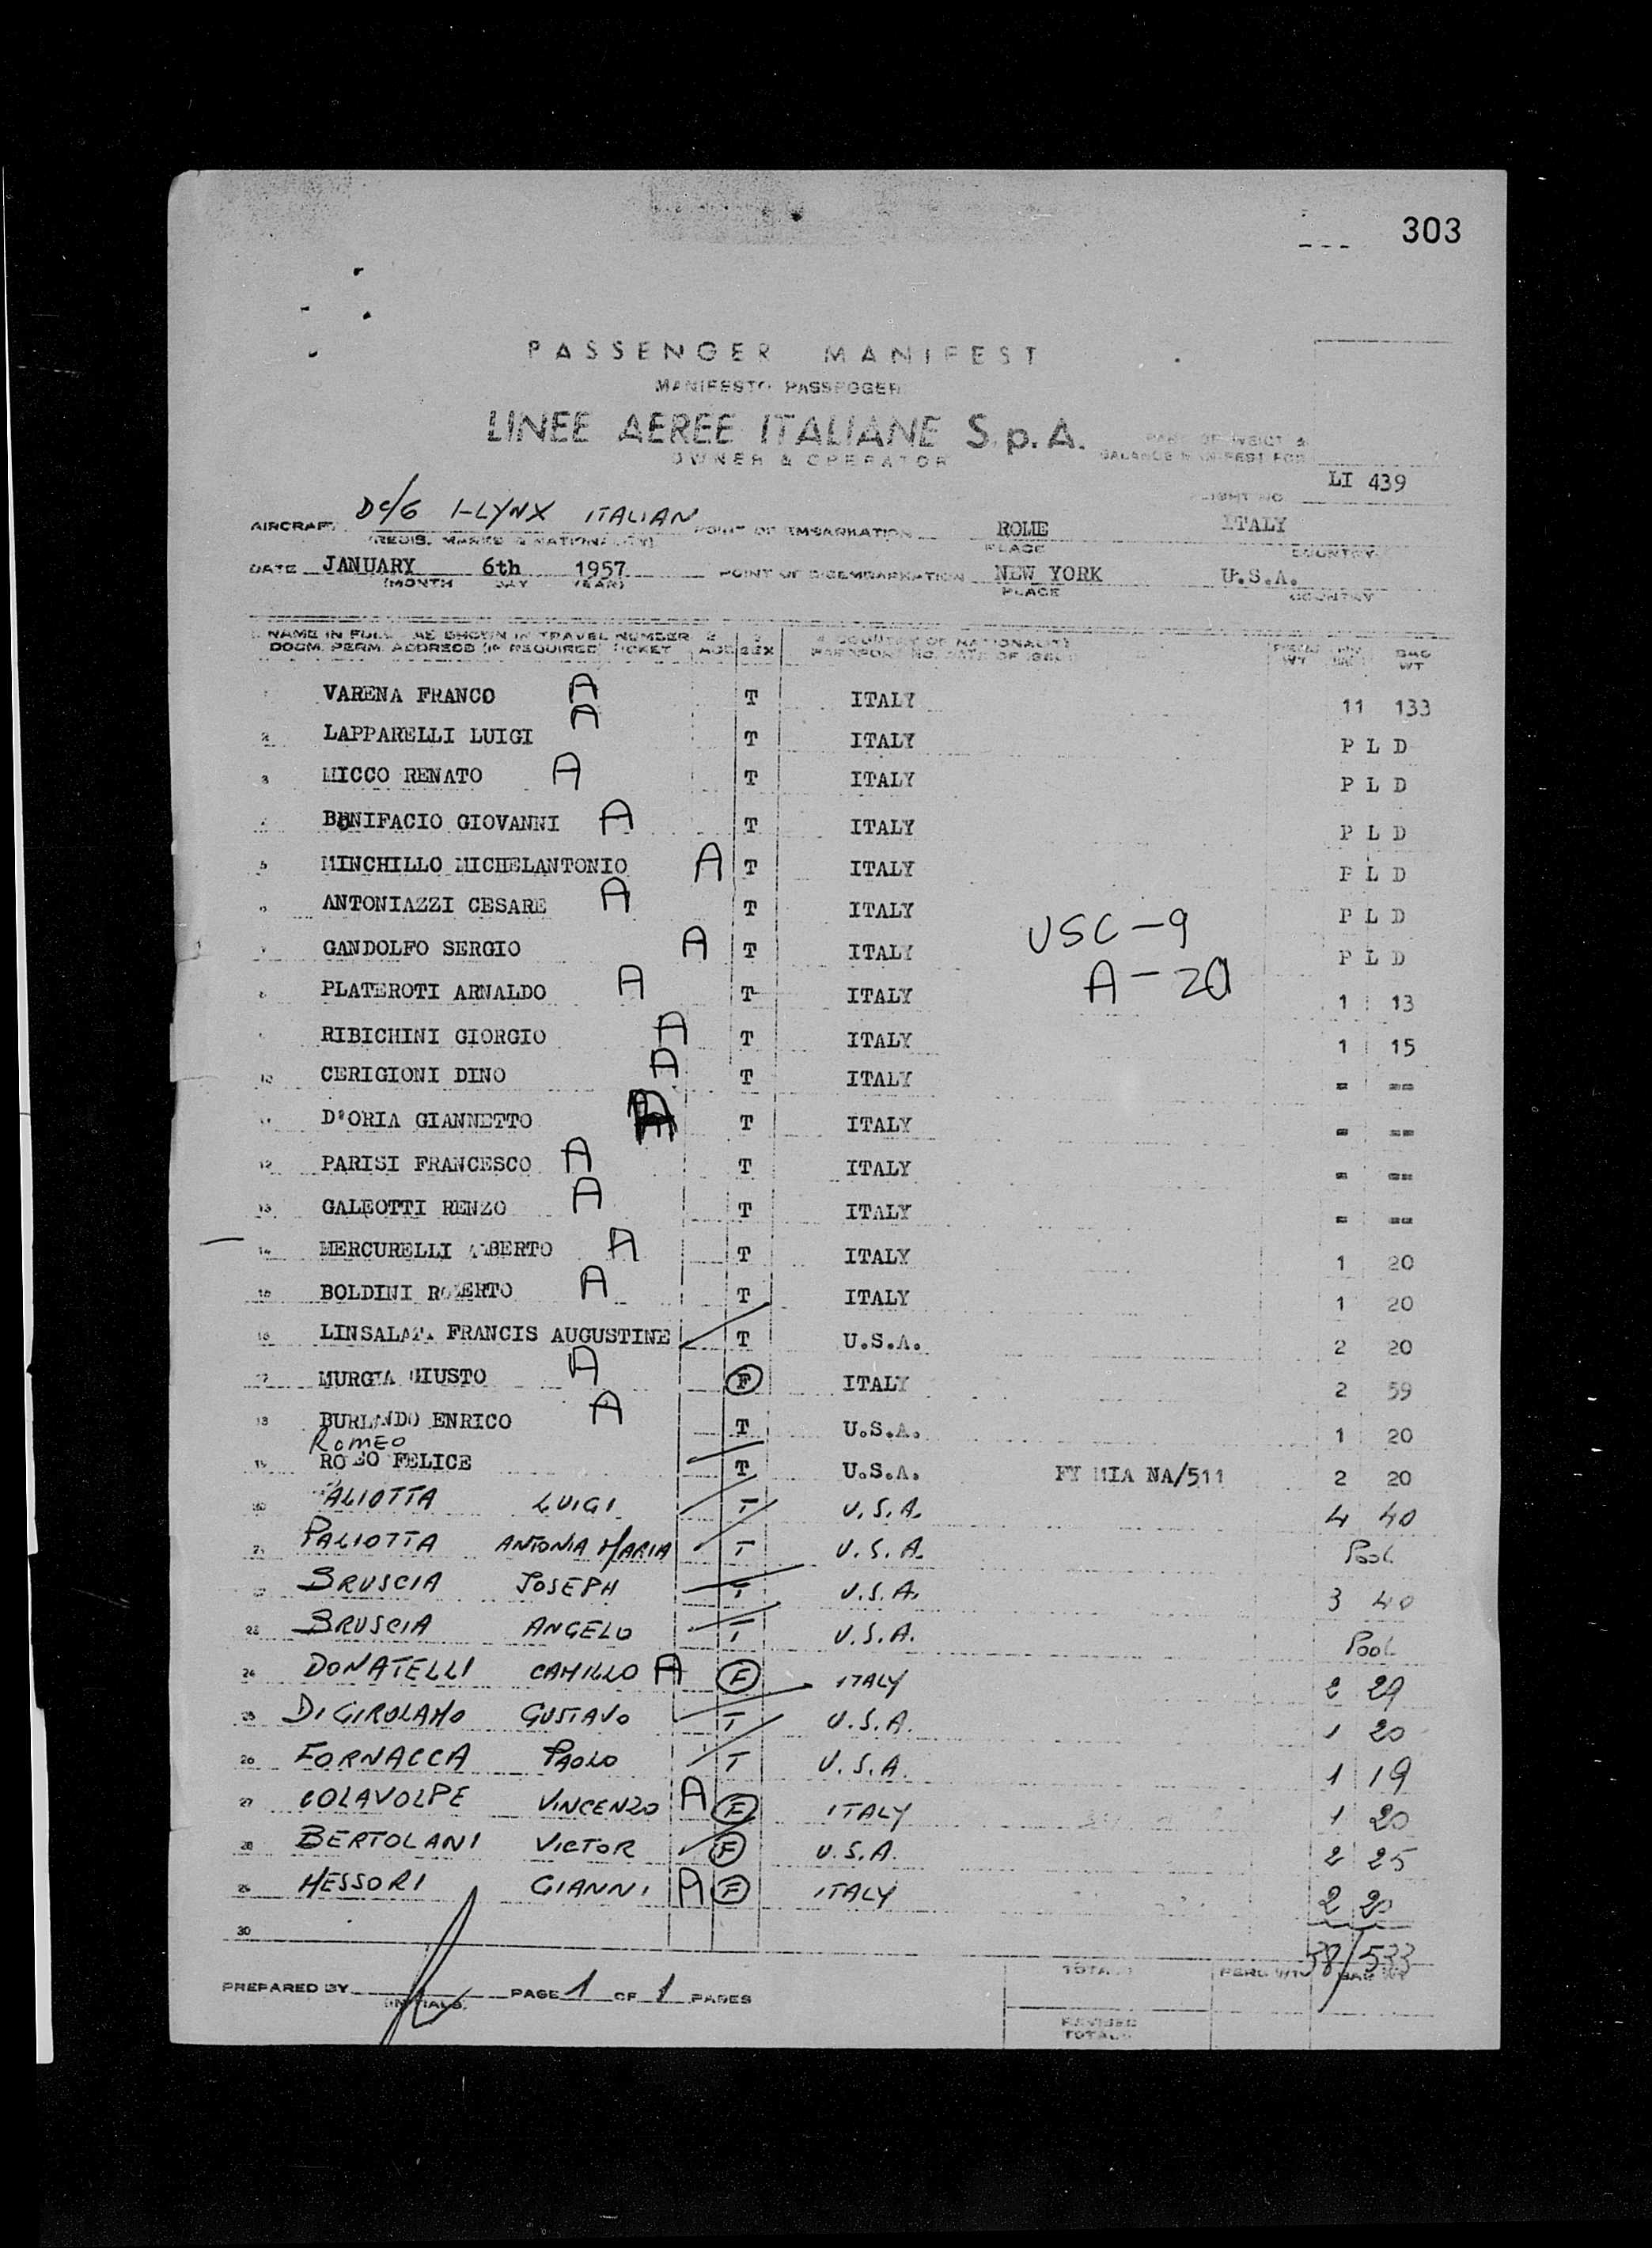 303
PASSENGER MANIFEST
MANIFESTO PASSEGGERI
LINEE AEREE ITALIANE S.p.A.
OWNER & OPERATOR
PART OF WEIGT &
BALANCE MANIFEST FOR
LI 439
FLIGHT NO
AIRCRAFT DC/6 I-LYNX ITALIAN POINT OF EMBARKATION ROME ITALY
(REGIS. MARKS & NATIONALITY) PLACE COUNTRY
DATE JANUARY 6th 1957 POINT OF DISEMBARKATION NEW YORK U.S.A.
(MONTH DAY YEAR) PLACE COUNTRY
1. NAME IN FULL AS SHOWN IN TRAVEL NUMBER 2 3 4 COUNTRY OF NATIONALITY
DOCM. PERM. ADDRESS (IF REQUIRED) TICKET AGE SEX PASSPORT NO. DATE OF ISSUE WT BAG WT
VARENA FRANCO A T ITALY 11 133
2 LAPPARELLI LUIGI A T ITALY P L D
3 MICCO RENATO A T ITALY P L D
BONIFACIO GIOVANNI A T ITALY P L D
5 MINCHILLO MICHELANTONIO A T ITALY P L D
ANTONIAZZI CESARE A T ITALY P L D
USC-9
GANDOLFO SERGIO A T ITALY P L D
A-20
PLATEROTI ARNALDO A T ITALY 1 13
RIBICHINI GIORGIO A T ITALY 1 15
10 CERIGIONI DINO A T ITALY - --
D'ORIA GIANNETTO A T ITALY - --
12 PARISI FRANCESCO A T ITALY - --
13 GALEOTTI RENZO A T ITALY - --
14 MERCURELLI ALBERTO A T ITALY 1 20
15 BOLDINI ROBERTO A T ITALY 1 20
16 LINSALATA FRANCIS AUGUSTINE T U.S.A. 2 20
17 MURGIA GIUSTO A F ITALY 2 59
18 BURLANDO ENRICO A T U.S.A. 1 20
ROMEO
19 ROMEO FELICE T U.S.A. FY MIA NA/511 2 20
20 PALIOTTA LUIGI T U.S.A. 4 40
21 PALIOTTA ANTONIA MARIA T U.S.A. Pool
22 BRUSCIA JOSEPH T U.S.A. 3 40
23 BRUSCIA ANGELO T U.S.A. Pool
24 DONATELLI CAMILLO A F ITALY 2 29
25 DI GIROLAMO GUSTAVO T U.S.A. 1 20
26 FORNACCA PAOLO T U.S.A. 1 19
27 COLAVOLPE VINCENZO A F ITALY 1 20
28 BERTOLANI VICTOR F U.S.A. 2 25
29 MESSORI GIANNI A F ITALY 2 20
30
38/533
TOTALS BAG WT
PREPARED BY PAGE 1 OF 1 PAGES
(INITIALS)
REVISED
TOTALS